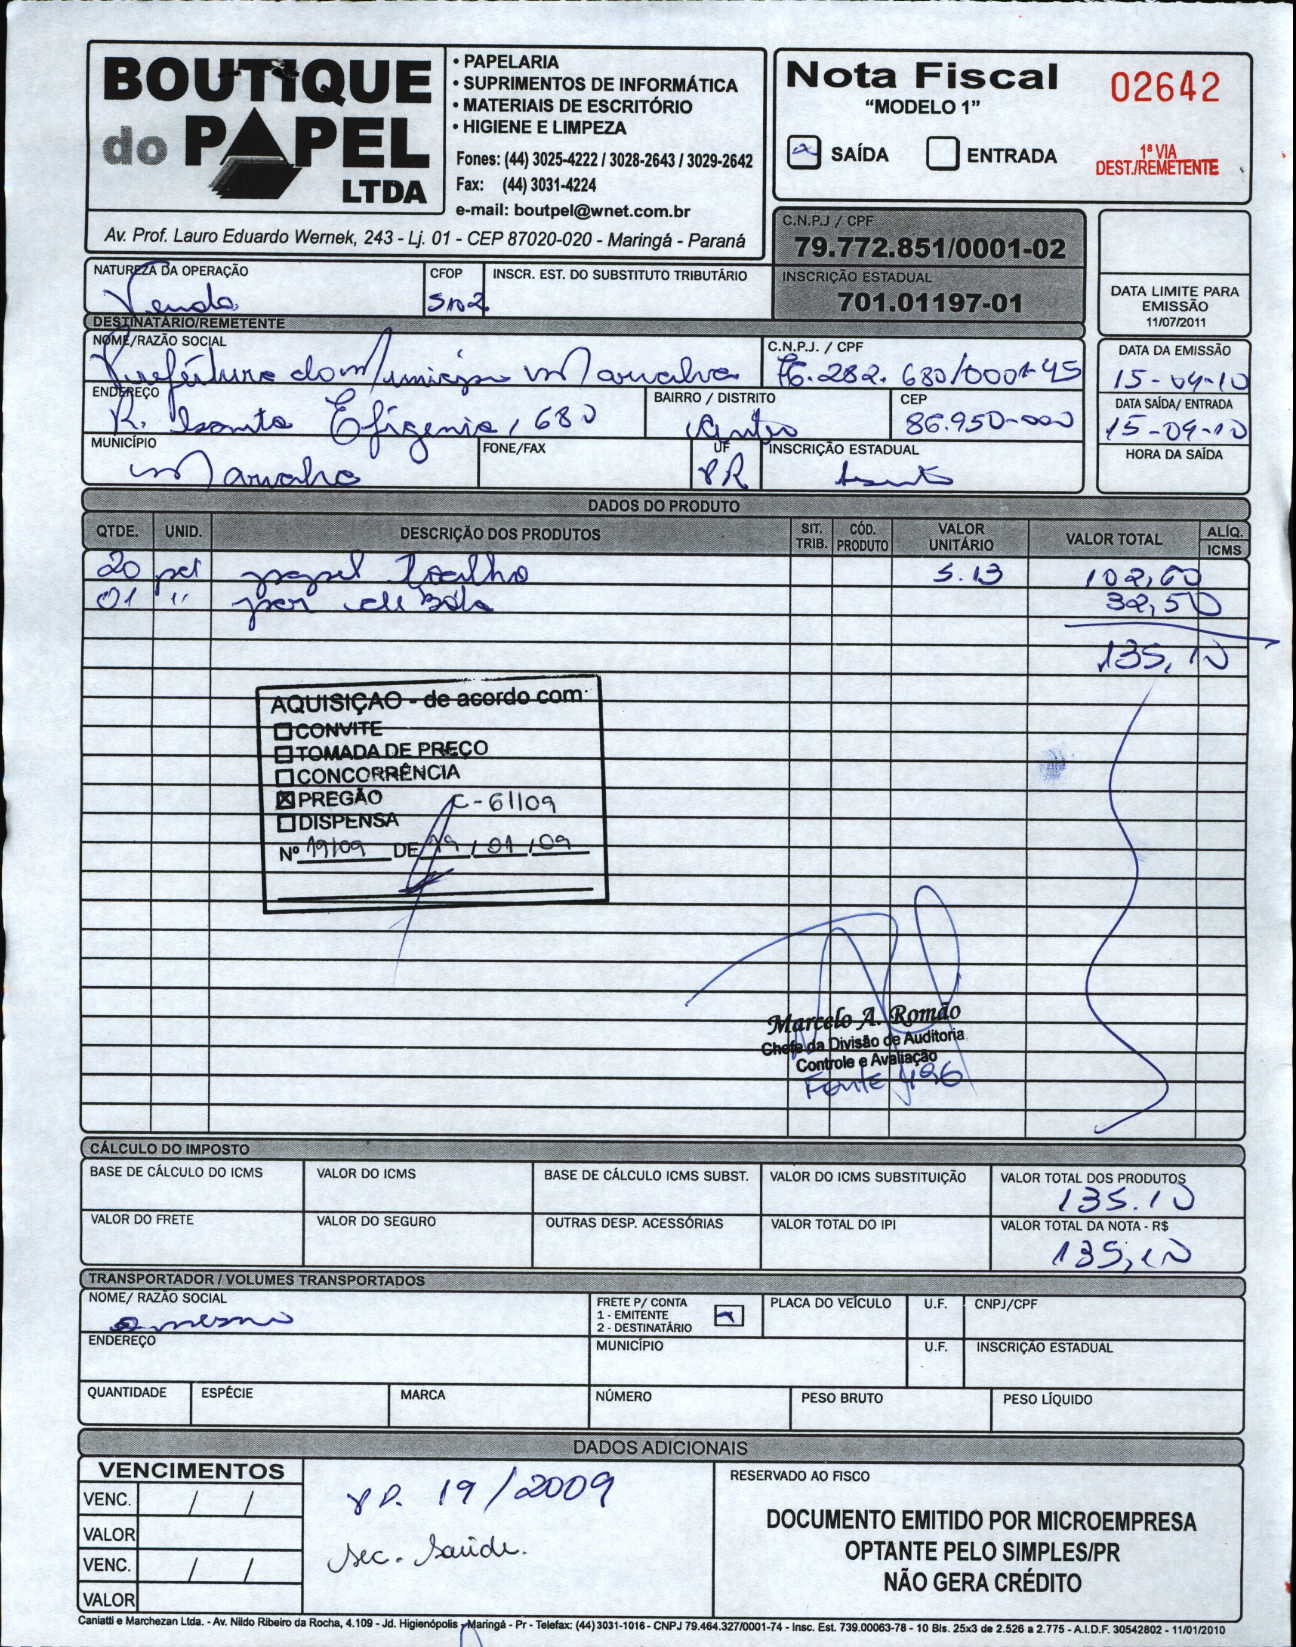 BOUTIQUE
do PAPEL
LTDA
• PAPELARIA
• SUPRIMENTOS DE INFORMÁTICA
• MATERIAIS DE ESCRITÓRIO
• HIGIENE E LIMPEZA
Fones: (44) 3025-4222 / 3028-2643 / 3029-2642
Fax: (44) 3031-4224
e-mail: boutpel@wnet.com.br
Av. Prof. Lauro Eduardo Wernek, 243 - Lj. 01 - CEP 87020-020 - Maringá - Paraná
Nota Fiscal 02642
"MODELO 1"
SAÍDA ENTRADA
1ª VIA
DEST./REMETENTE
C.N.P.J / CPF
79.772.851/0001-02
INSCRIÇÃO ESTADUAL
701.01197-01
DATA LIMITE PARA
EMISSÃO
11/07/2011
NATUREZA DA OPERAÇÃO CFOP INSCR. EST. DO SUBSTITUTO TRIBUTÁRIO
Venda 5102
DESTINATÁRIO/REMETENTE
NOME/RAZÃO SOCIAL C.N.P.J. / CPF DATA DA EMISSÃO
Prefeitura do Município Marialva 76.282.680/0001-45 15-04-10
ENDEREÇO BAIRRO / DISTRITO CEP DATA SAÍDA/ ENTRADA
R. Santa Efigenia, 680 Centro 86.950-000 15-04-10
MUNICÍPIO FONE/FAX UF INSCRIÇÃO ESTADUAL HORA DA SAÍDA
Marialva PR Isento
DADOS DO PRODUTO
QTDE. UNID. DESCRIÇÃO DOS PRODUTOS SIT. TRIB. CÓD. PRODUTO VALOR UNITÁRIO VALOR TOTAL ALÍQ. ICMS
20 pct papel toalha 5.13 102,60
01 " 32,50
135,10
AQUISIÇAO - de acordo com:
CONVITE
TOMADA DE PREÇO
CONCORRÊNCIA
PREGÃO C-61109
DISPENSA
Nº 19/09 DE 19/01/09
Marcelo A. Romão
Chefe da Divisão de Auditoria
Controle e Avaliação
Fonte
CÁLCULO DO IMPOSTO
BASE DE CÁLCULO DO ICMS VALOR DO ICMS BASE DE CÁLCULO ICMS SUBST. VALOR DO ICMS SUBSTITUIÇÃO VALOR TOTAL DOS PRODUTOS
135.10
VALOR DO FRETE VALOR DO SEGURO OUTRAS DESP. ACESSÓRIAS VALOR TOTAL DO IPI VALOR TOTAL DA NOTA - R$
135,10
TRANSPORTADOR / VOLUMES TRANSPORTADOS
NOME/ RAZÃO SOCIAL FRETE P/ CONTA PLACA DO VEÍCULO U.F. CNPJ/CPF
1 - EMITENTE
2 - DESTINATÁRIO
o mesmo
ENDEREÇO MUNICÍPIO U.F. INSCRIÇÃO ESTADUAL
QUANTIDADE ESPÉCIE MARCA NÚMERO PESO BRUTO PESO LÍQUIDO
DADOS ADICIONAIS
VENCIMENTOS
VENC. / /
VALOR
VENC. / /
VALOR
PP. 19/2009
Sec. Saúde.
RESERVADO AO FISCO
DOCUMENTO EMITIDO POR MICROEMPRESA
OPTANTE PELO SIMPLES/PR
NÃO GERA CRÉDITO
Caniatti e Marchezan Ltda. - Av. Nildo Ribeiro da Rocha, 4.109 - Jd. Higienópolis - Maringá - Pr - Telefax: (44) 3031-1016 - CNPJ 79.464.327/0001-74 - Insc. Est. 739.00063-78 - 10 Bls. 25x3 de 2.526 a 2.775 - A.I.D.F. 30542802 - 11/01/2010